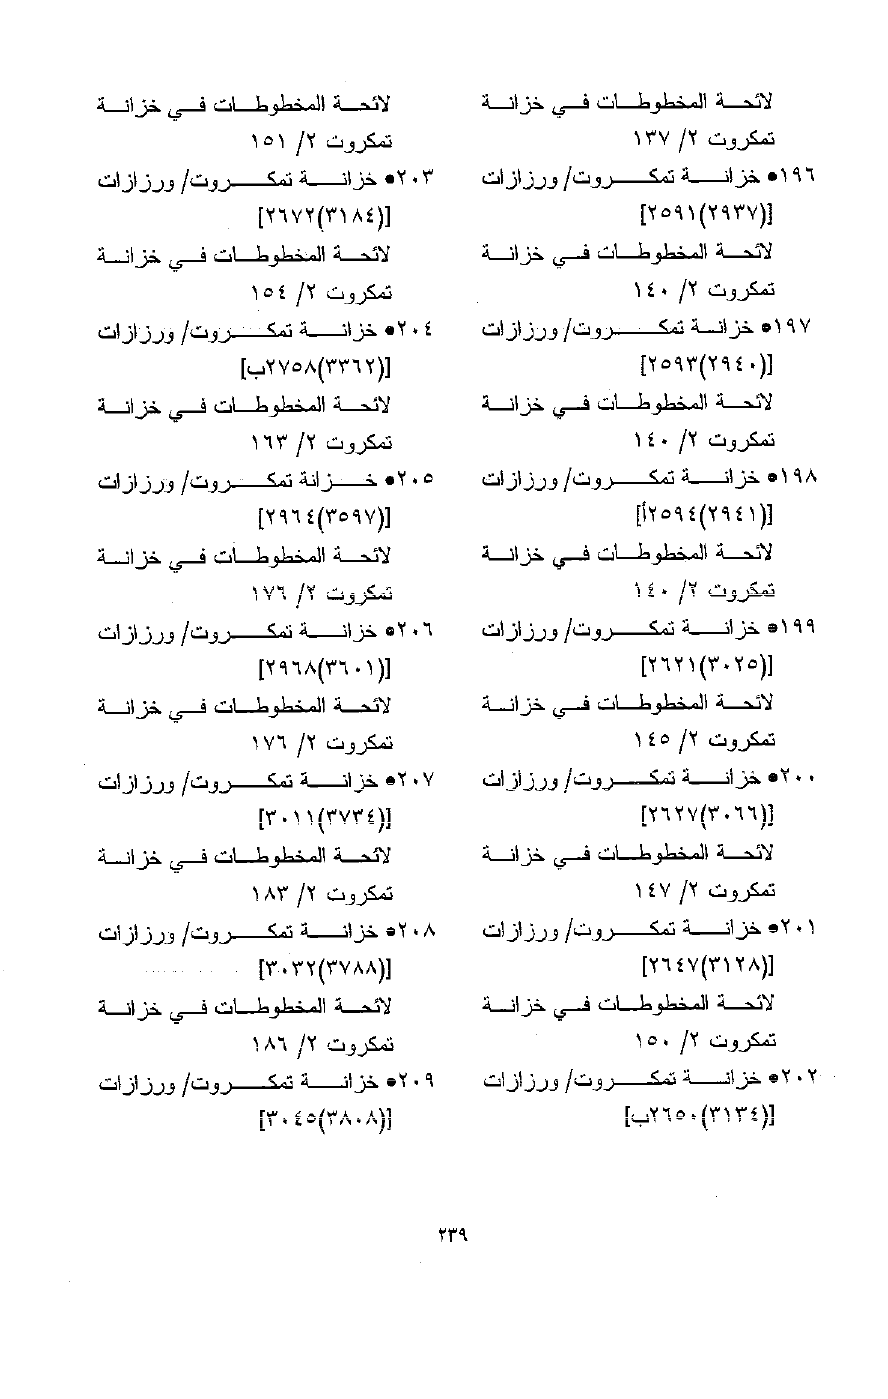 لائحة المخطوطات في خزانة
تمكروت ٢/ ١٣٧
١٩٦• خزانة تمكروت/ ورزازات
[(٢٩٣٧)٢٥٩١]
لائحة المخطوطات في خزانة
تمكروت ٢/ ١٤٠
١٩٧• خزانة تمكروت/ ورزازات
[(٢٩٤٠)٢٥٩٣]
لائحة المخطوطات في خزانة
تمكروت ٢/ ١٤٠
١٩٨• خزانة تمكروت/ ورزازات
[(٢٩٤١)٢٥٩٤أ]
لائحة المخطوطات في خزانة
تمكروت ٢/ ١٤٠
١٩٩• خزانة تمكروت/ ورزازات
[(٣٠٢٥)٢٦٢١]
لائحة المخطوطات في خزانة
تمكروت ٢/ ١٤٥
٢٠٠• خزانة تمكروت/ ورزازات
[(٣٠٦٦)٢٦٢٧]
لائحة المخطوطات في خزانة
تمكروت ٢/ ١٤٧
٢٠١• خزانة تمكروت/ ورزازات
[(٣١٢٨)٢٦٤٧]
لائحة المخطوطات في خزانة
تمكروت ٢/ ١٥٠
٢٠٢• خزانة تمكروت/ ورزازات
[(٣١٣٤)٢٦٥٠ب]
لائحة المخطوطات في خزانة
تمكروت ٢/ ١٥١
٢٠٣• خزانة تمكروت/ ورزازات
[(٣١٨٤)٢٦٧٢]
لائحة المخطوطات في خزانة
تمكروت ٢/ ١٥٤
٢٠٤• خزانة تمكروت/ ورزازات
[(٣٣٦٢)٢٧٥٨ب]
لائحة المخطوطات في خزانة
تمكروت ٢/ ١٦٣
٢٠٥• خزانة تمكروت/ ورزازات
[(٣٥٩٧)٢٩٦٤]
لائحة المخطوطات في خزانة
تمكروت ٢/ ١٧٦
٢٠٦• خزانة تمكروت/ ورزازات
[(٣٦٠١)٢٩٦٨]
لائحة المخطوطات في خزانة
تمكروت ٢/ ١٧٦
٢٠٧• خزانة تمكروت/ ورزازات
[(٣٧٣٤)٣٠١١]
لائحة المخطوطات في خزانة
تمكروت ٢/ ١٨٣
٢٠٨• خزانة تمكروت/ ورزازات
[(٣٧٨٨)٣٠٣٢]
لائحة المخطوطات في خزانة
تمكروت ٢/ ١٨٦
٢٠٩• خزانة تمكروت/ ورزازات
[(٣٨٠٨)٣٠٤٥]
٢٣٩